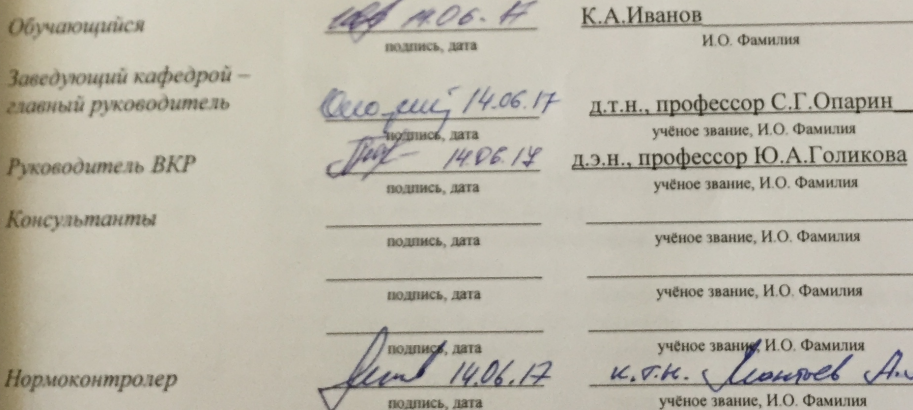 Обучающийся 14.06.17 К.А.Иванов
подпись, дата И.О. Фамилия
Заведующий кафедрой –
главный руководитель 14.06.17 д.т.н., профессор С.Г.Опарин
подпись, дата учёное звание, И.О. Фамилия
Руководитель ВКР 14.06.17 д.э.н., профессор Ю.А.Голикова
подпись, дата учёное звание, И.О. Фамилия
Консультанты
подпись, дата учёное звание, И.О. Фамилия
подпись, дата учёное звание, И.О. Фамилия
подпись, дата учёное звание, И.О. Фамилия
Нормоконтролер 14.06.17 к.т.н.
подпись, дата учёное звание, И.О. Фамилия